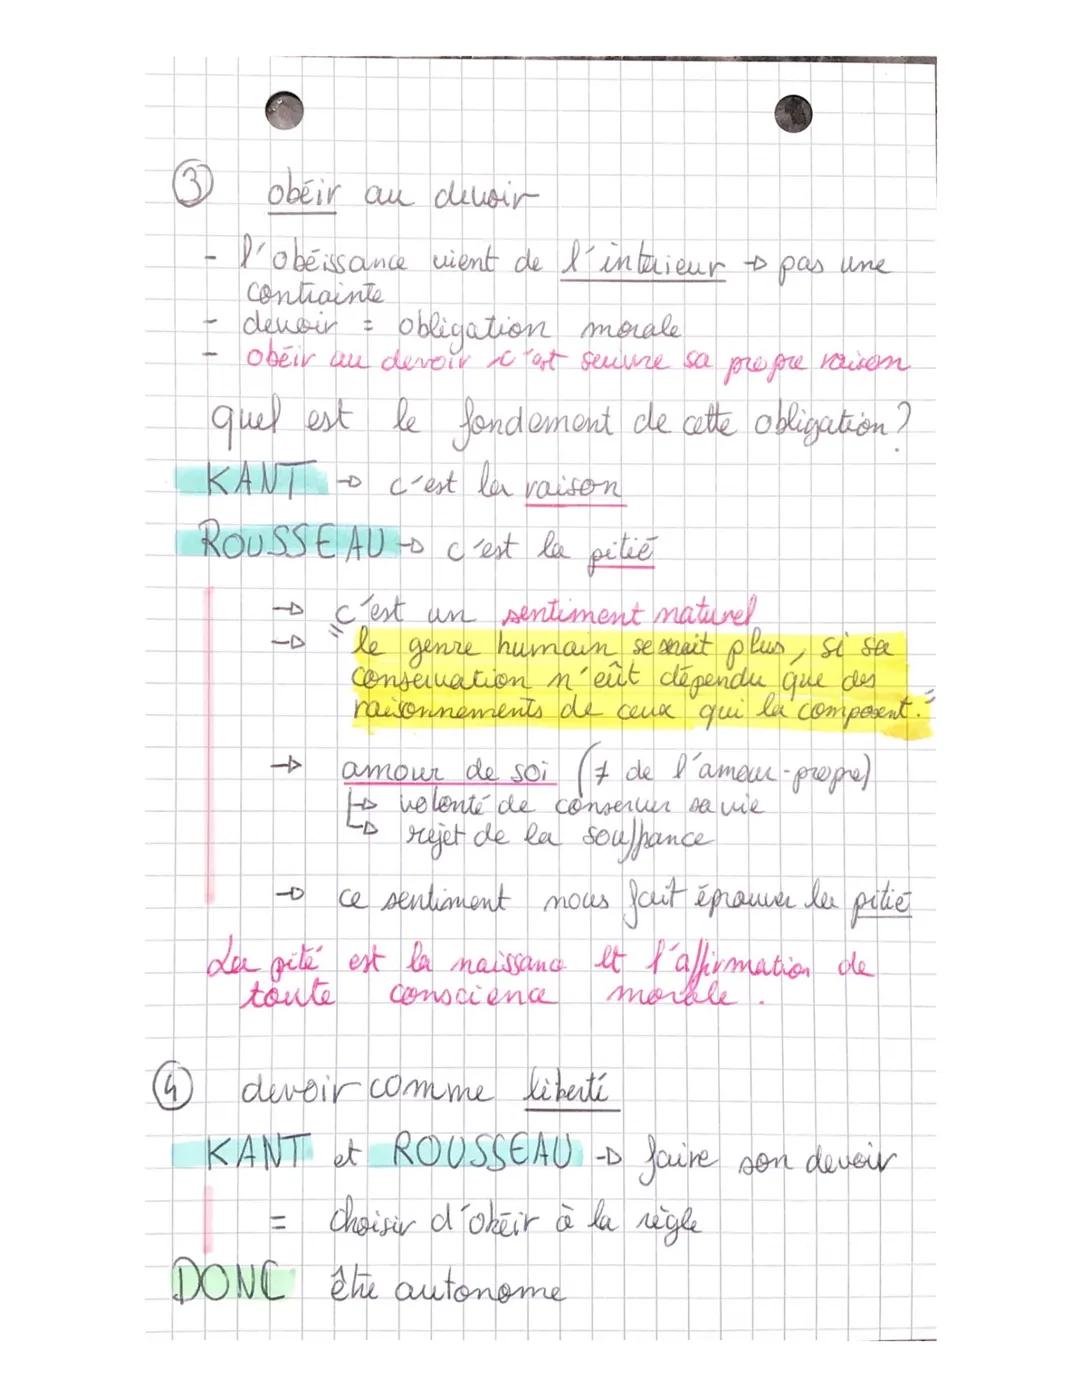 ③ obéir au devoir
- l'obéissance vient de l'intérieur → pas une
contrainte
- devoir = obligation morale
- obéir au devoir c'est suivre sa propre raison
quel est le fondement de cette obligation ?
KANT → c'est la raison
ROUSSEAU → c'est la pitié
→ c'est un sentiment naturel
→ "le genre humain ne serait plus, si sa
conservation n'eût dépendu que des
raisonnements de ceux qui la composent."
→ amour de soi (≠ de l'amour-propre)
↳ volonté de conserver sa vie
↳ rejet de la souffrance
→ ce sentiment nous fait éprouver la pitié
La pité est la naissance et l'affirmation de
toute conscience morale.
④ devoir comme liberté
KANT et ROUSSEAU → faire son devoir
= choisir d'obéir à la règle
DONC être autonome